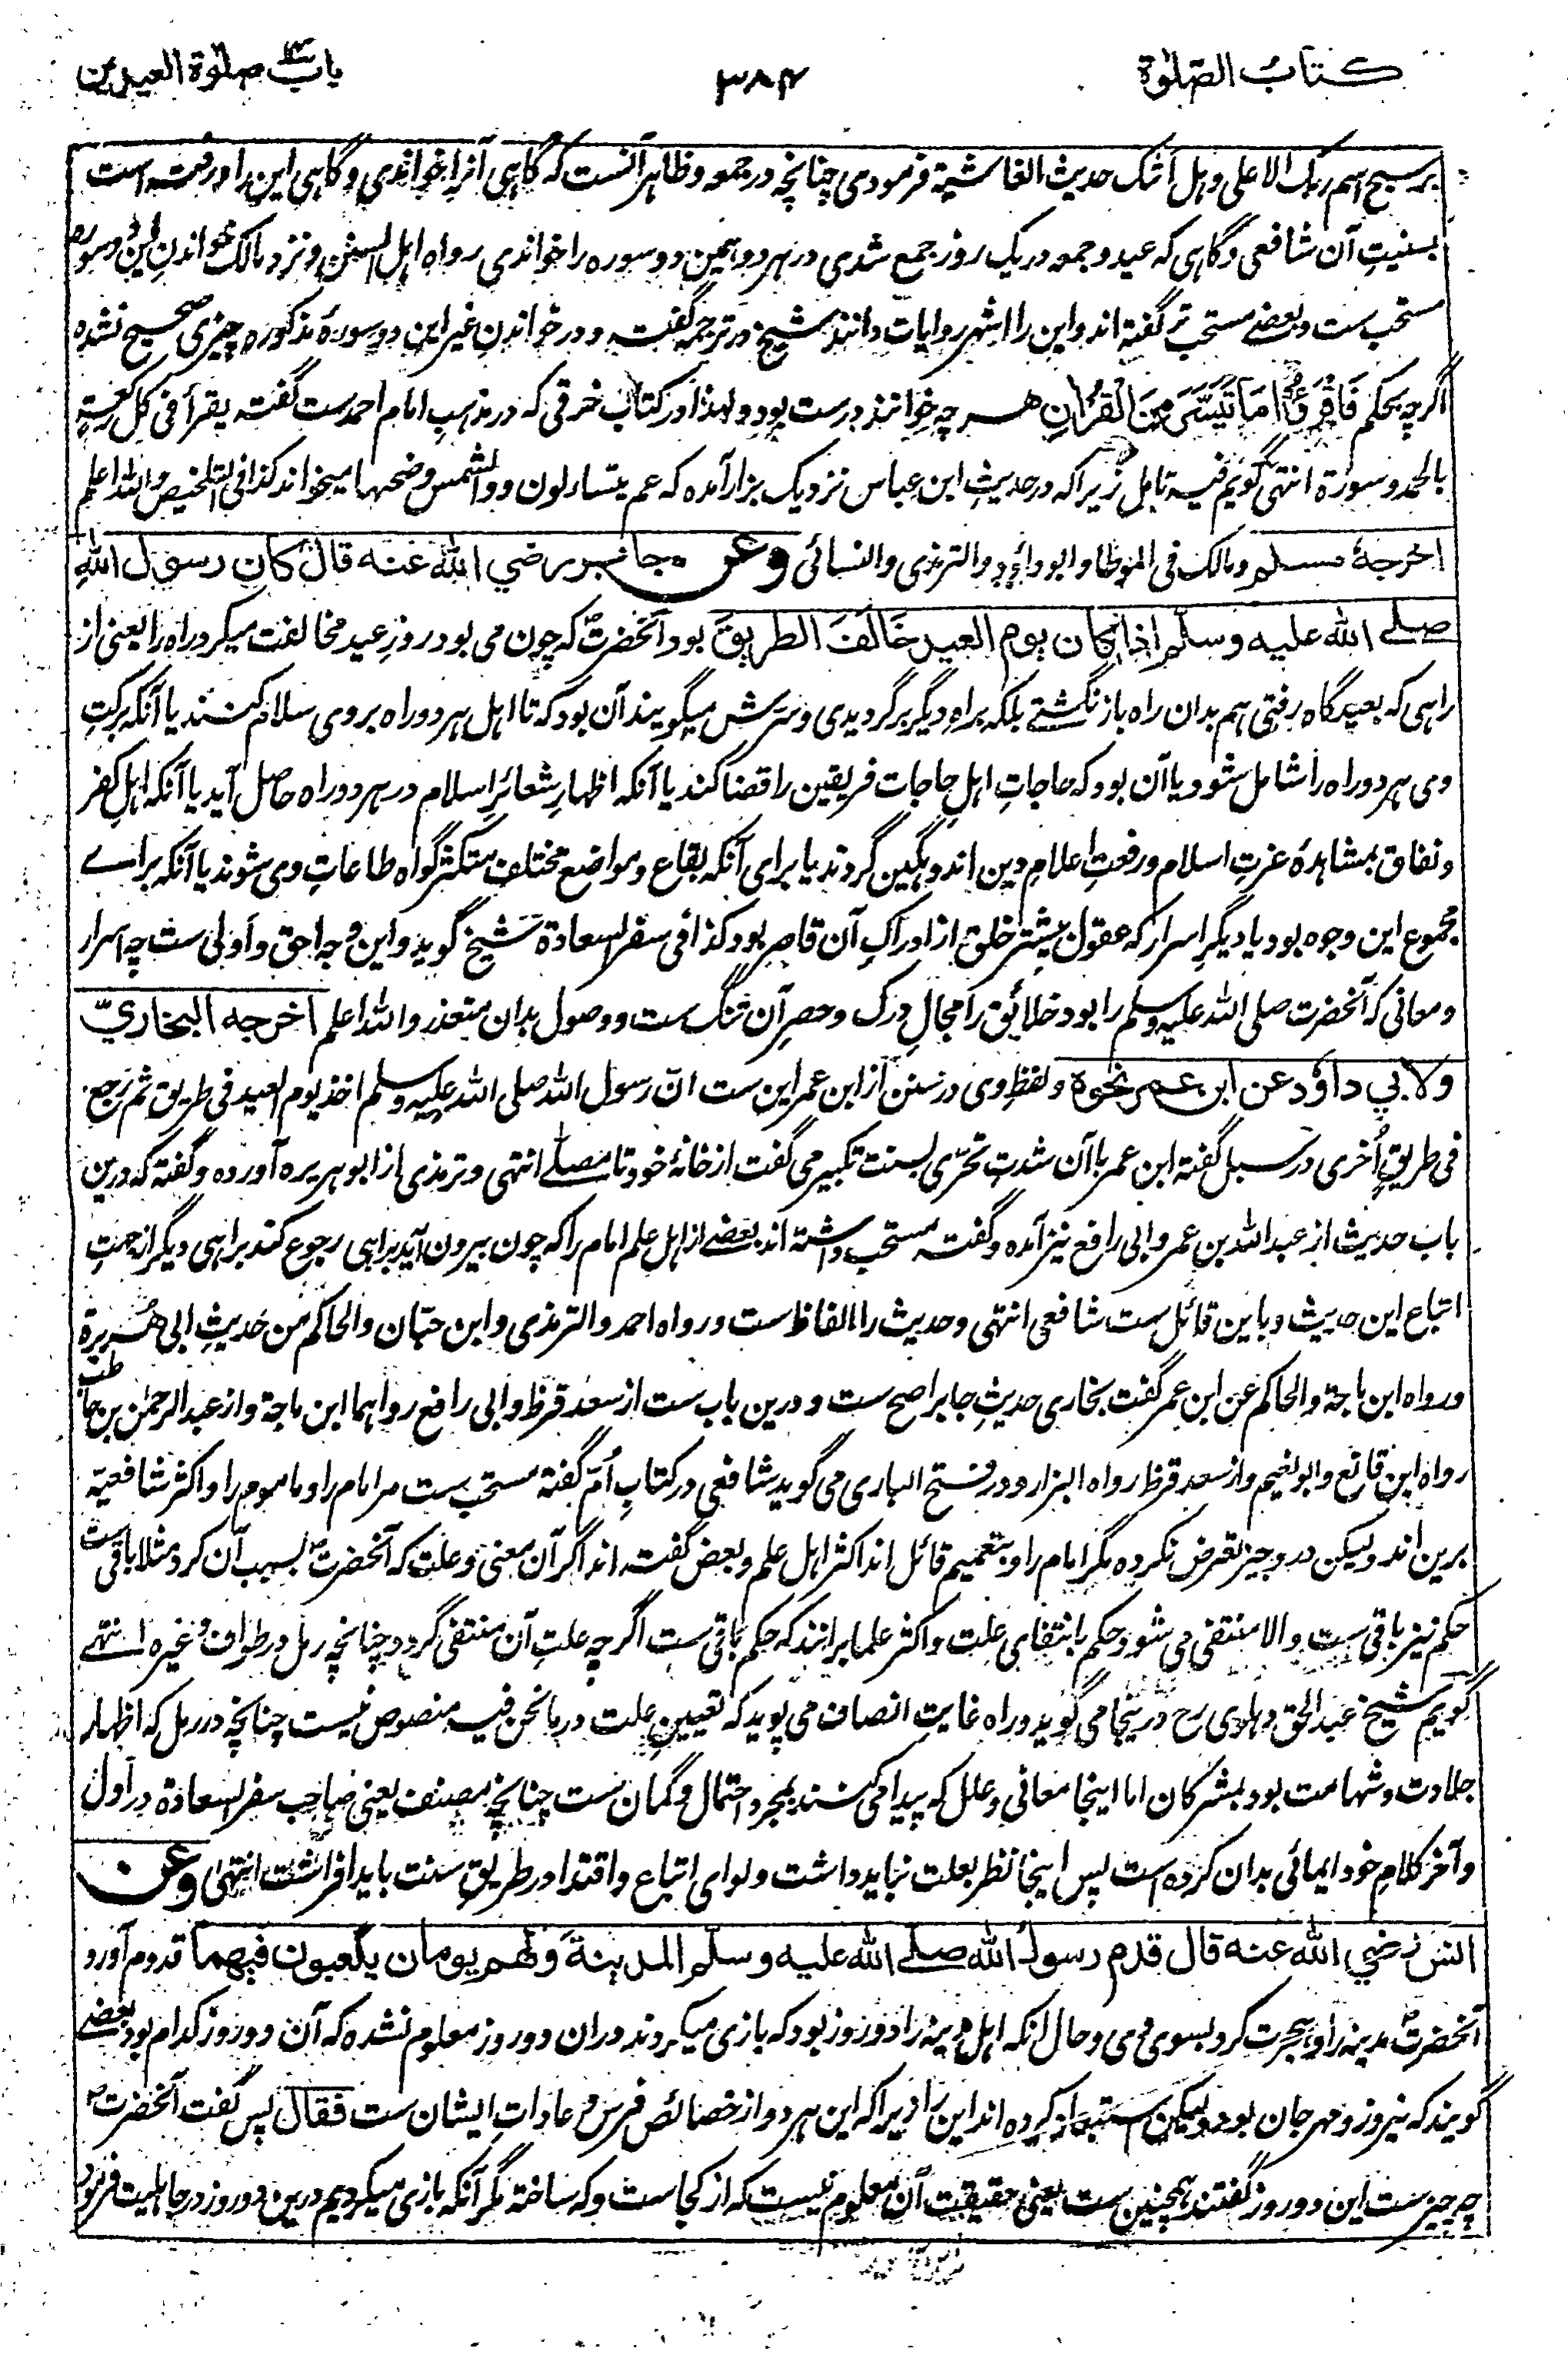 کتاب الصلوٰة
۳۸۴
باب صلوٰة العیدین
بر سبح اسم ربک الاعلی و هل اتٰک حدیث الغاشیة فرمودی چنانچه در جمعه و ظاهر آنست که گاهی آنرا خواندی و گاهی این را و رفته است
بسنیتِ آن شافعی و گاهی که عید و جمعه در یک روز جمع شدی در هر دو همین دو سوره را خواندی رواه اهل السنن و نزد مالک خواندنِ این دو سوره
مستحب ست و بعضے مستحب تر گفته اند و این را اشهر روایات دانند شیخ در ترجمه گفته و در خواندنِ غیر این دو سورهٔ مذکوره چیزی صحیح نشده
اگرچه بحکم فَاقْرَؤُا مَا تَیَسَّرَ مِنَ الْقُرْاٰنِ هر چه خوانند درست بود و لهذا در کتاب خرقی که در مذهبِ امام احمد ست گفته یقرأ فی کل رکعةٍ
بالحمد و سورة انتهیٰ گویم فیه تامل زیرا که در حدیثِ ابن عباس نزدیک بزار آمده که عم یتساءلون و والشمس و ضحٰها میخواند کذا فی التلخیص والله اعلم
اخرجهٔ مسلم و مالک فی الموطا و ابو داؤد والترمذی والنسائی وعن جابر رضي الله عنه قال کان رسول الله
صلے الله علیه وسلم اذا کان یوم العید خَالَفَ الطریقَ بود آنحضرتؐ که چون می بود روزِ عید مخالفت میکرد راه را یعنی از
راهی که بعیدگاه رفتی هم بدان راه باز نگشتے بلکه براهِ دیگر برگردیدی و سرش میگویند آن بود که تا اهل هر دو راه بر وی سلام کنند یا آنکه برکتِ
وی هر دو راه را شامل شود و یا آن بود که حاجاتِ اهلِ حاجات فریقین را قضا کند یا آنکه اظهارِ شعائرِ اسلام در هر دو راه حاصل آید یا آنکه اهلِ کفر
و نفاق بمشاهدهٔ عزتِ اسلام و رفعتِ اعلامِ دین اندوهگین گردند یا برای آنکه بقاع و مواضع مختلف متکثر گواه طاعاتِ وی شوند یا آنکه براے
مجموع این وجوه بود یا دیگر اسرار که عقول بیشتر خلق از ادراکِ آن قاصر بود کذا فی سفر السعادة شیخ گوید و این وجه احق و اولی ست چه اسرار
و معانی که آنحضرت صلی الله علیه وسلم را بود خلائق را مجالِ درک و حصرِ آن تنگ ست و وصول بدان متعذر والله اعلم اخرجه البخاريّ
ولابي داؤد عن ابن عمر نحوه و لفظِ وی در سنن از ابن عمر این ست انّ رسول الله صلی الله علیه وسلم اخذ یوم العید فی طریق ثم رجع
فی طریقٍ اُخری در سبل گفته ابن عمر با آن شدتِ تحرّی بسنت تکبیر می گفت از خانهٔ خود تا مصلے انتهی و ترمذی از ابو هریره آورده و گفته که درین
باب حدیث از عبد الله بن عمر و ابی رافع نیز آمده و گفته مستحب داشته اند بعضے از اهل علم امام را که چون بیرون آید براهی رجوع کند براهی دیگر از جهتِ
اتباع این حدیث و باین قائل ست شافعی انتهی و حدیث را الفاظ ست و رواه احمد والترمذی و ابن حبّان والحاکم من حدیثِ ابی هُریرة
و رواه ابن ماجة والحاکم عن ابن عمر گفت بخاری حدیثِ جابر اصح ست و درین باب ست از سعد قرظ و ابی رافع رواهما ابن ماجة و از عبد الرحمٰن بن حاطب
رواه ابن قانع و ابو نعیم و از سعد قرظ رواه البزار و در فتح الباری می گوید شافعی در کتابِ اُمّ گفته مستحب ست مر امام را و ماموم را و اکثر شافعیه
برین اند و لیکن در وجیز تعرض نکرده مگر امام را و بتعمیم قائل اند اکثر اهل علم و بعض گفته اند اگر آن معنی و علت که آنحضرتؐ بسبب آن کرد مثلا باقی ست
حکم نیز باقی ست و الا منتفی می شود حکم بانتفای علت و اکثر علما برانند که حکم باقی ست اگرچه علتِ آن منتفی گردد چنانچه رمل در طواف و غیره انتهے
گویم شیخ عبد الحق دهلوی رح درینجا می گوید و راه غایتِ انصاف می پوید که تعیینِ علت در ما نحن فیه منصوص نیست چنانچه در رمل که اظهار
جلادت و شهامت بود بمشرکان اما اینجا معانی و علل که پیدا می کنند بمجرد احتمال و گمان ست چنانچه مصنف یعنی صاحب سفر السعادة در اول
و آخر کلامِ خود ایمائی بدان کرده است پس اینجا نظر بعلت نباید داشت و لوای اتباع و اقتدا در طریقِ سنت باید افراشت انتهیٰ وعن
انس رضي الله عنه قال قدم رسولُ الله صلے الله علیه وسلم المدینةَ ولهم یومان یلعبون فیهما قدوم آورد
آنحضرتؐ مدینه را و هجرت کرد بسوی وی و حال آنکه اهل مدینه را دو روز بود که بازی میکردند دران دو روز معلوم نشده که آن دو روز کدام بود بعضے
گویند که نیروز و مهرجان بود و لیکن استبعاد کرده اند این را زیرا که این هر دو از خصائص فرس و عاداتِ ایشان ست فقال پس گفت آنحضرتؐ
چه چیز ست این دو روز گفتند همچنین ست یعنی حقیقت آن معلوم نیست که از کجاست و که ساخته مگر آنکه بازی میکردیم درین دو روز در جاهلیت فرمود